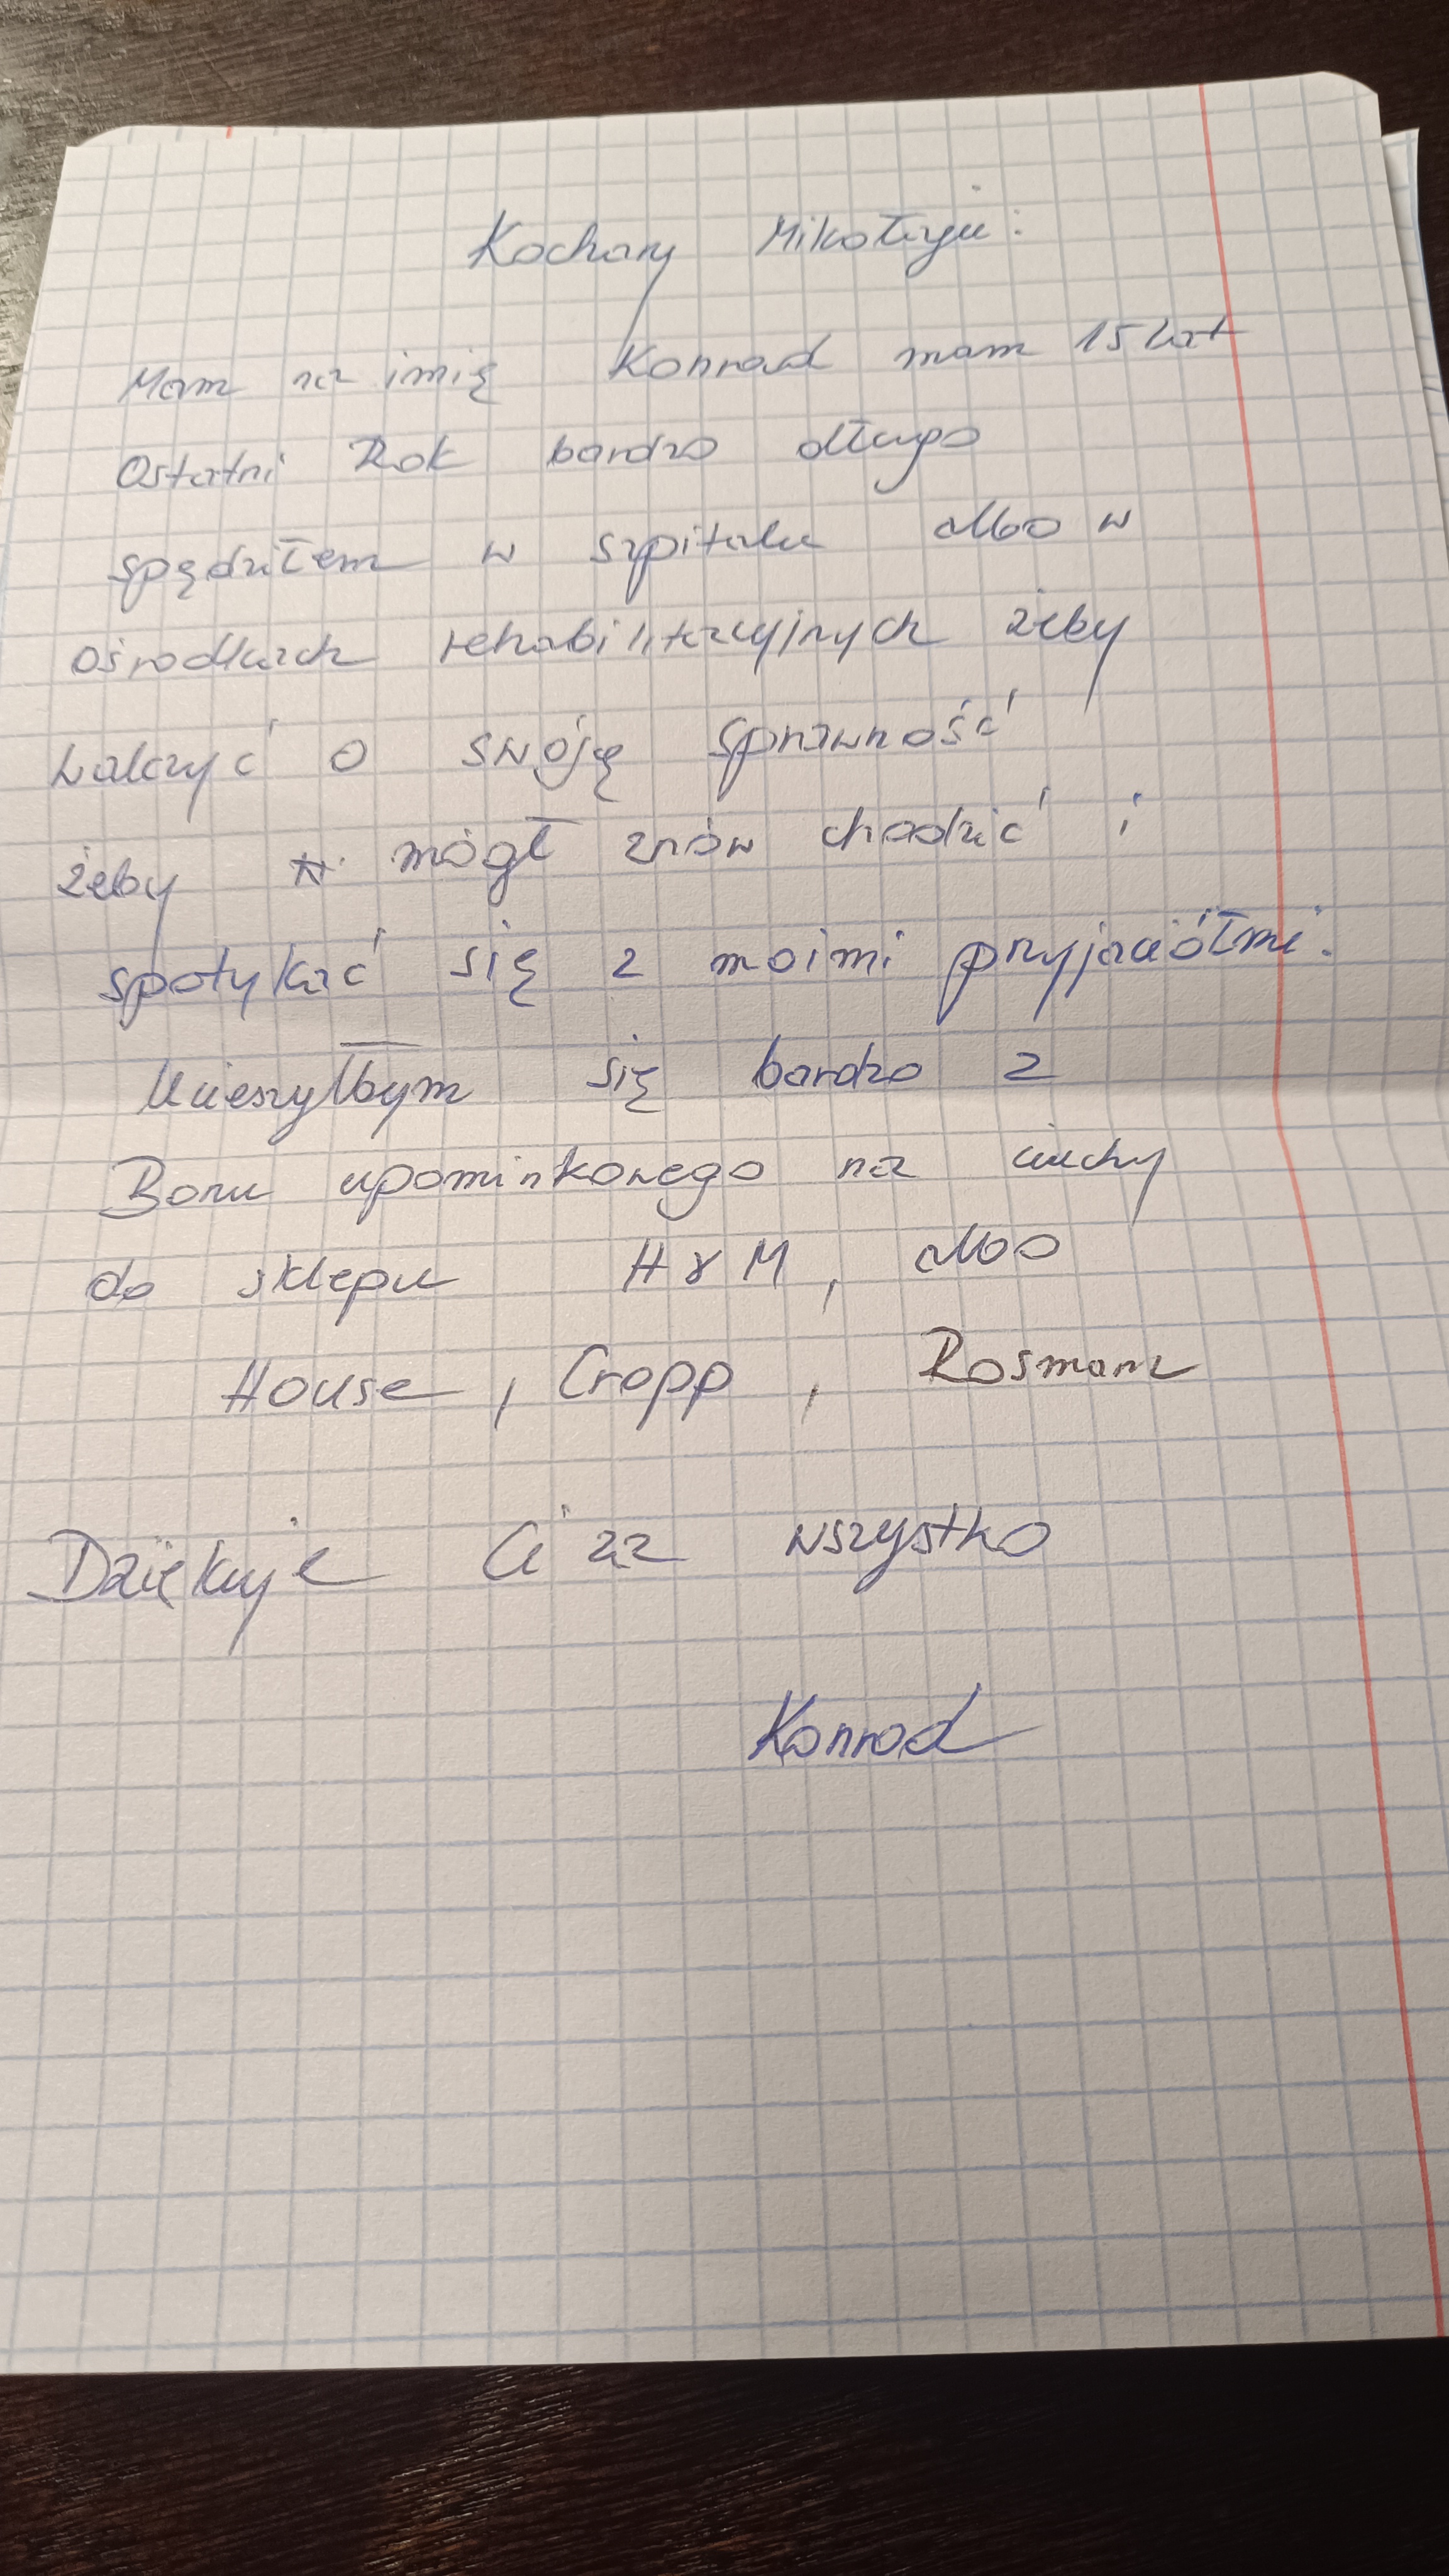 Kochany Mikołaju:
Mam na imię Konrad mam 15 lat
Ostatni Rok bardzo długo
spędziłem w szpitalu albo w
ośrodkach rehabilitacyjnych żeby
walczyć o swóję sprawność
żeby mógł znów chodzić i
spotykać się z moimi przyjaciółmi.
Ucieszyłbym się bardzo z
Bonu upominkowego na ciuchy
do sklepu H&M, albo
House, Cropp, Rosmann
Dziękuje Ci za wszystko
Konrad